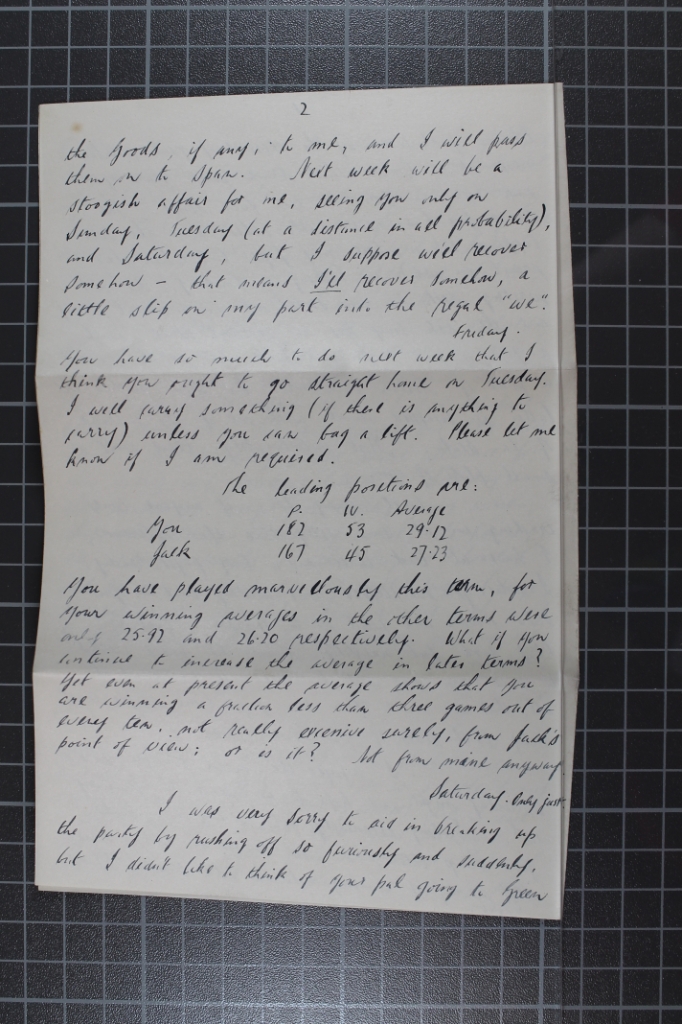 2
the Goods, if any, to me, and I will pass
them on to Span. Next week will be a
stoogish affair for me, seeing you only on
Sunday, Tuesday (at a distance in all probability),
and Saturday, but I suppose we'll recover
somehow – that means I'll recover somehow, a
little slip on my part into the regal "we".
Friday.
You have so much to do next week that I
think you ought to go straight home on Tuesday.
I will carry something (if there is anything to
carry) unless you can bag a lift. Please let me
know if I am required.
The leading positions are:
P. W. Average
You 182 53 29.12
Jack 167 45 27.23
You have played marvellously this term, for
your winning averages in the other terms were
only 25.92 and 26.20 respectively. What if you
continue to increase the average in later terms?
Yet even at present the average shows that you
are winning a fraction less than three games out of
every ten, not really excessive surely, from Jack's
point of view; or is it? Not from mine anyway.
Saturday. Only just
I was very sorry to aid in breaking up
the party by rushing off so furiously and suddenly,
but I didn't like to think of your pal going to Green